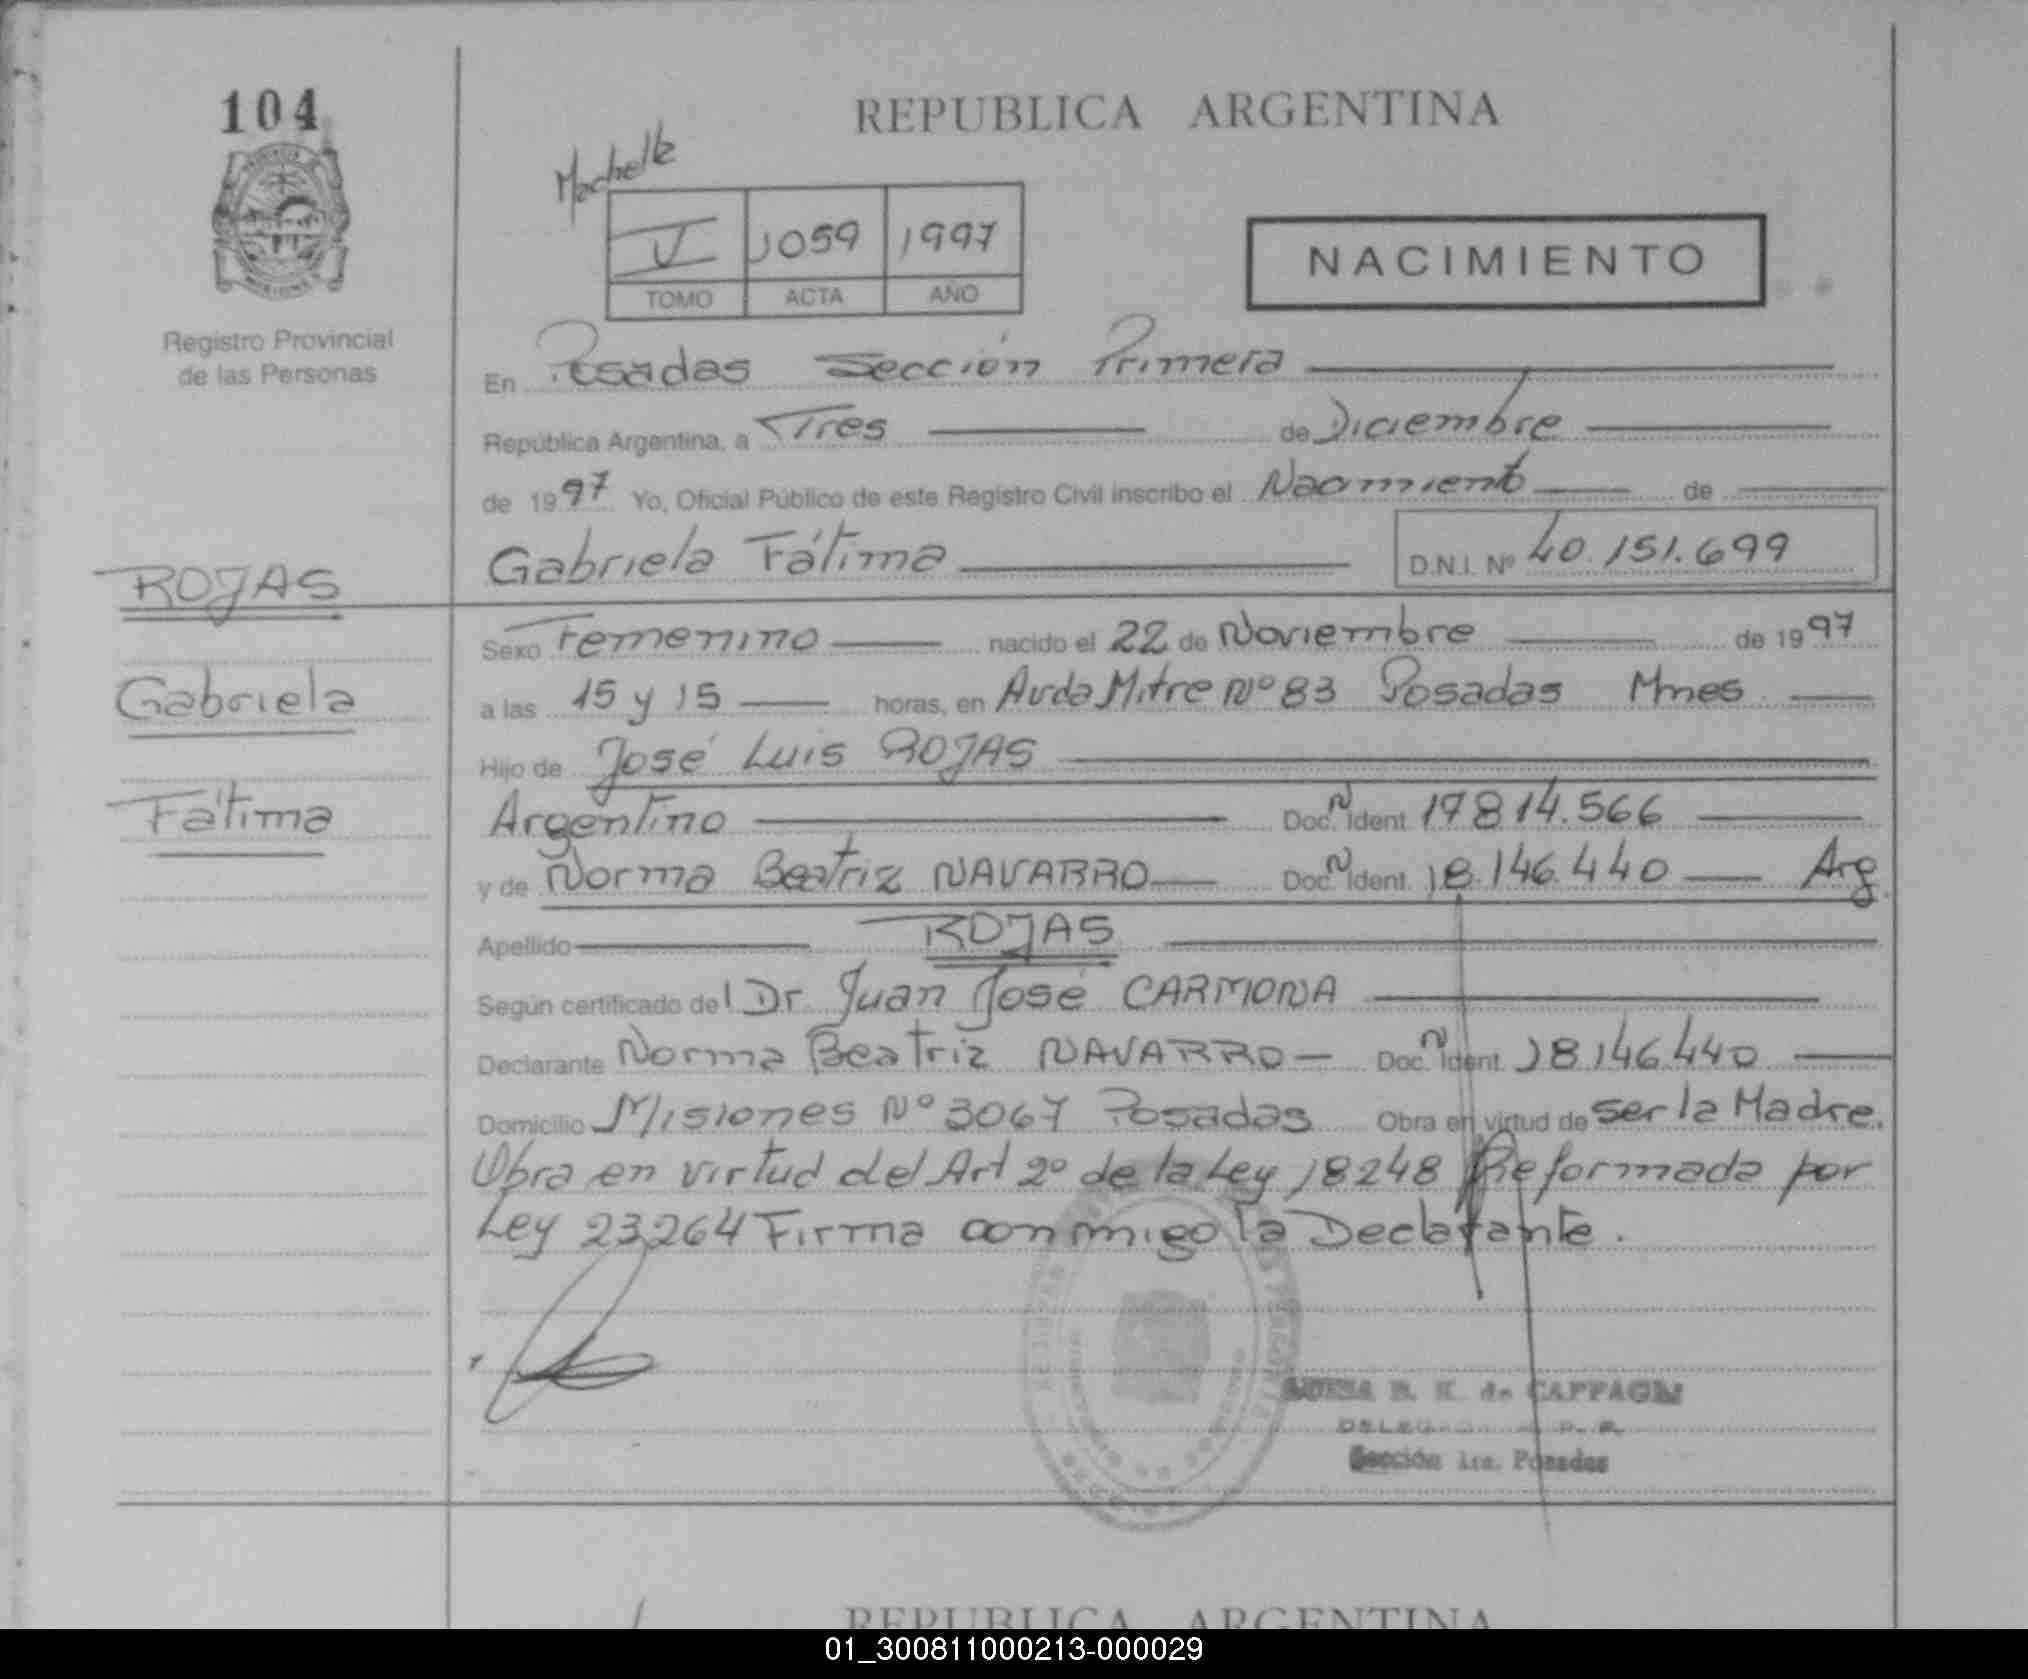 104
REPUBLICA ARGENTINA
V 1059 1997
TOMO ACTA AÑO
NACIMIENTO
Registro Provincial
de las Personas
En Posadas Sección Primera
República Argentina, a Tres de Diciembre
de 1997 Yo, Oficial Público de este Registro Civil inscribo el Nacimiento de
Gabriela Fátima D.N.I. Nº 40.151.699
ROJAS
Gabriela
Fátima
Sexo Femenino nacido el 22 de Noviembre de 1997
a las 15 y 15 horas, en Avda Mitre Nº 83 Posadas Mnes
Hijo de José Luis ROJAS
Argentino Doc. Ident. 17814.566
y de Norma Beatriz NAVARRO Doc. Ident. 18.146.440 Arg.
Apellido ROJAS
Según certificado del Dr. Juan José CARMONA
Declarante Norma Beatriz NAVARRO Doc. Ident. 18146.440
Domicilio Misiones Nº 3067 Posadas Obra en virtud de ser la Madre.
Obra en virtud del Art 2º de la Ley 18248 Reformada por
Ley 23264 Firma conmigo la Declarante.
de CAPPAGLI
Sección 1ra. Posadas
REPUBLICA ARGENTINA
01_300811000213-000029